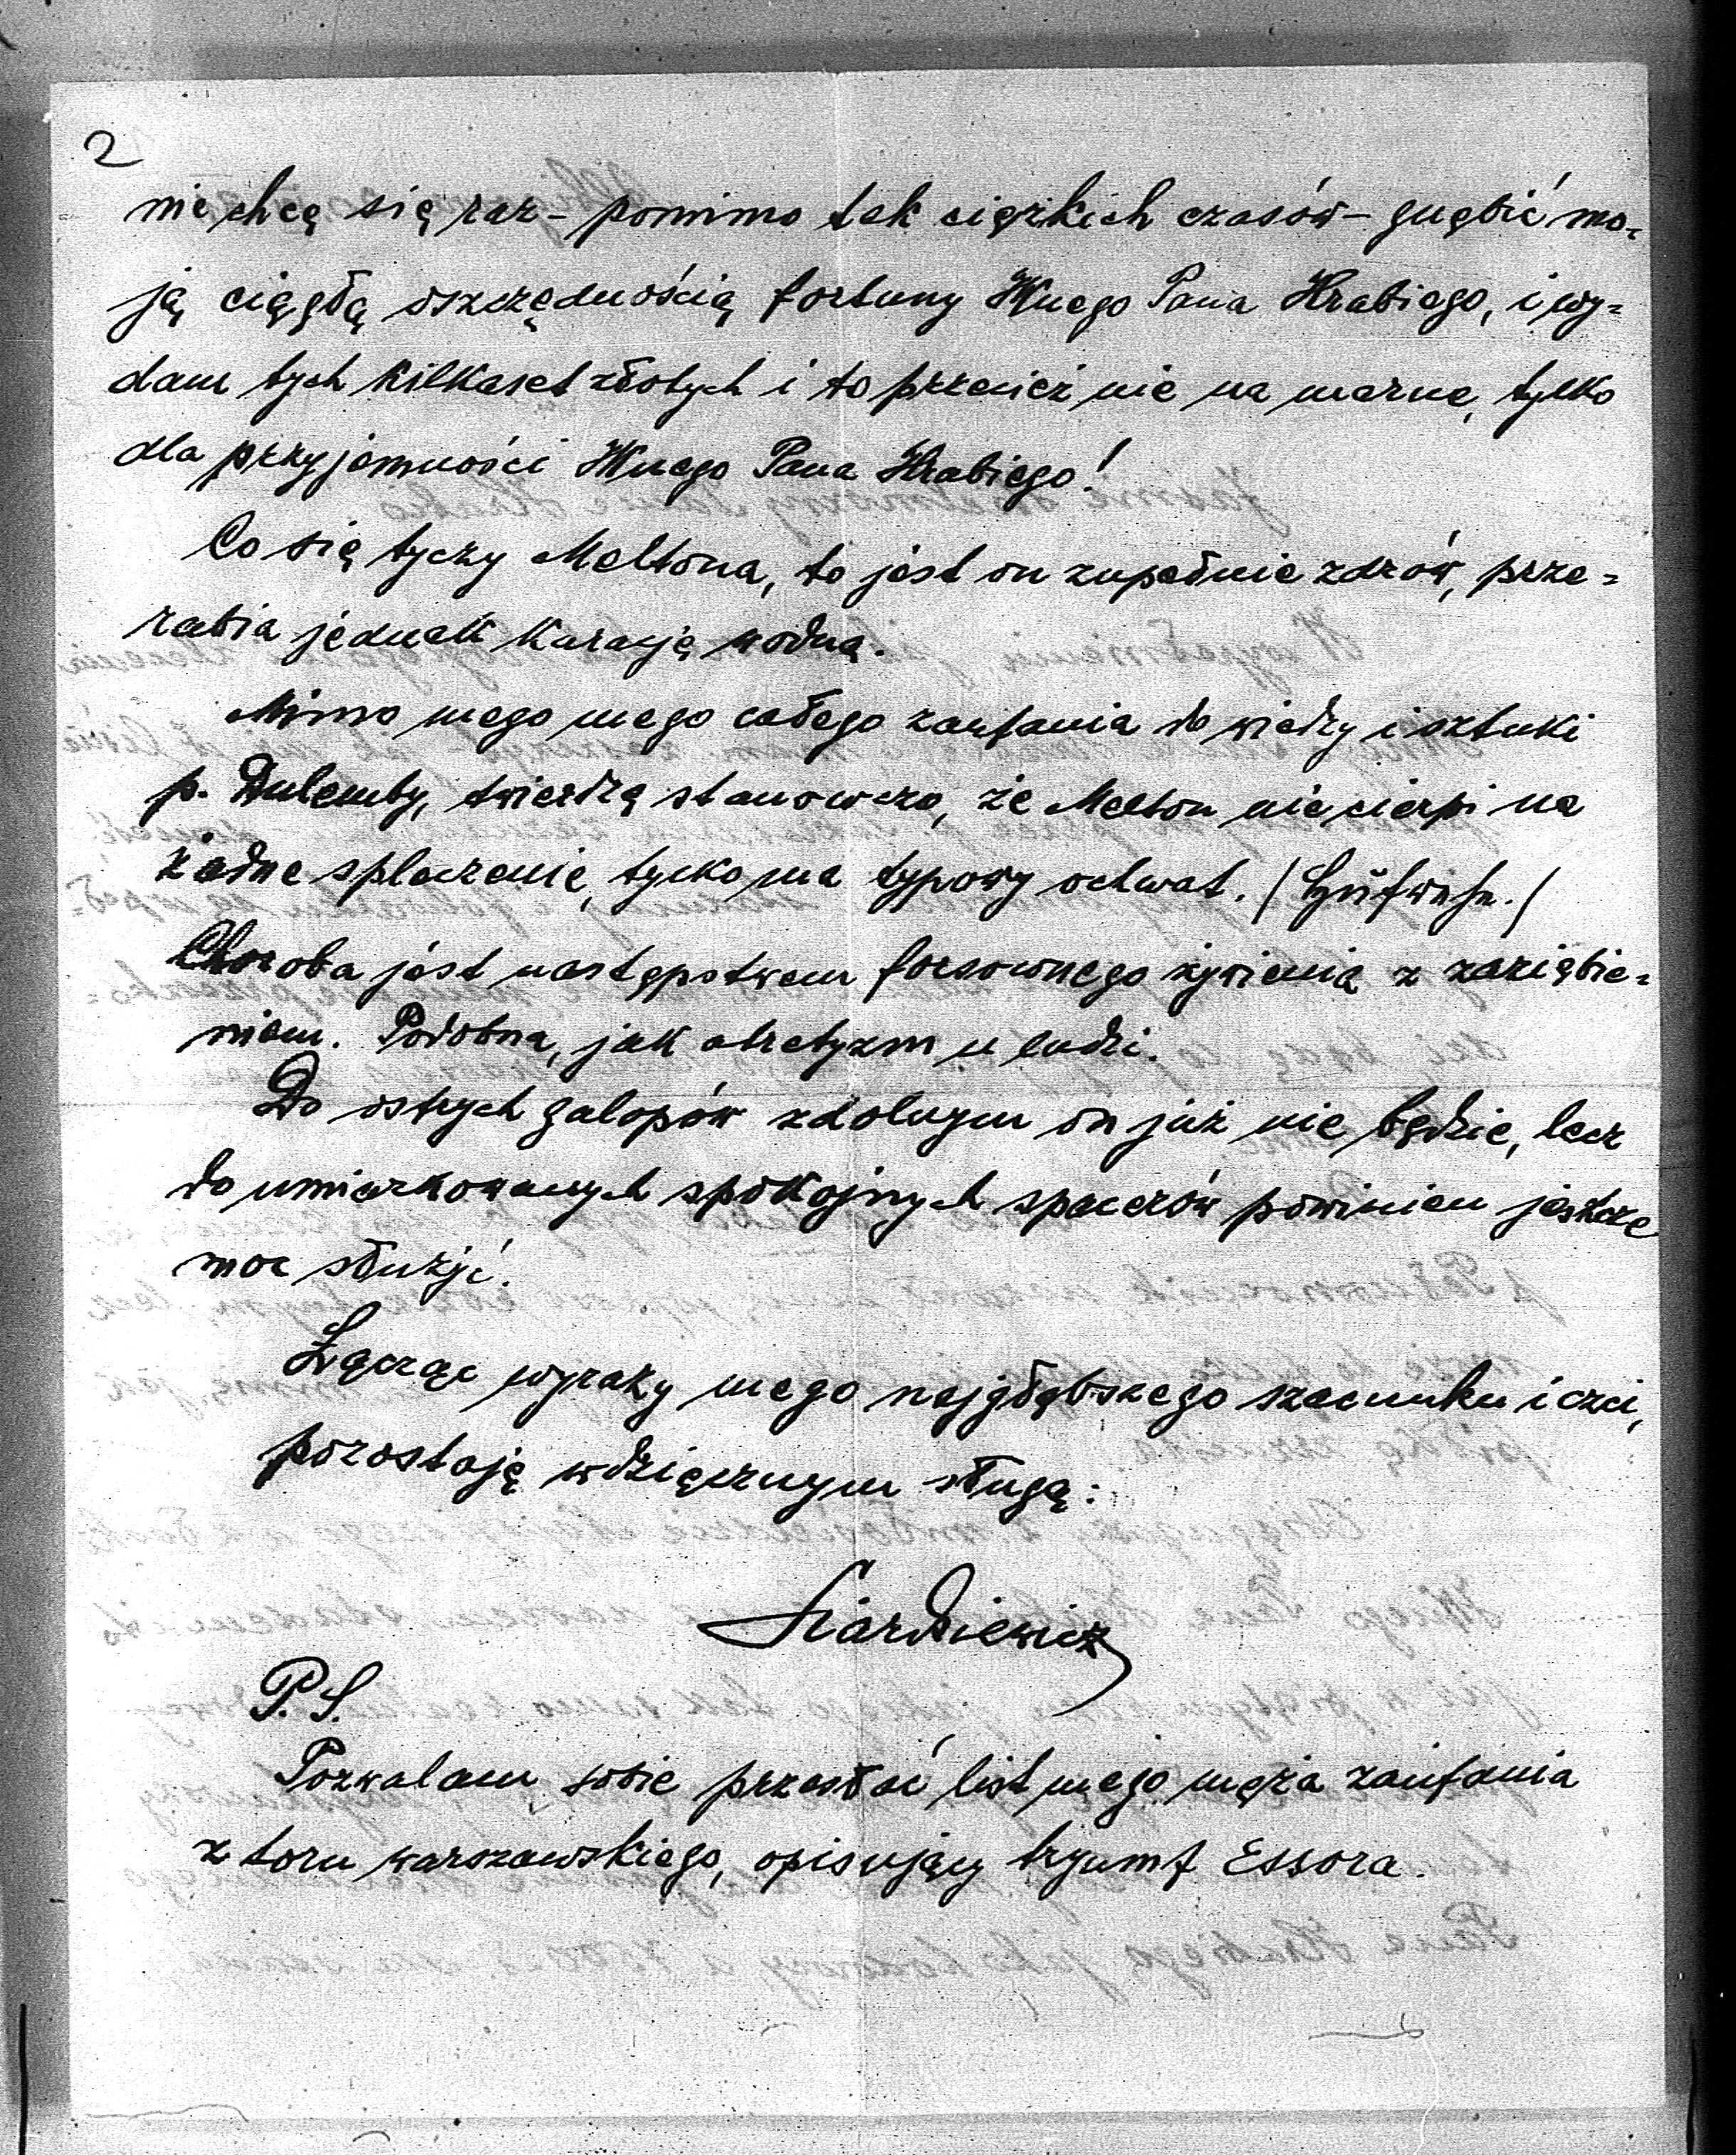 2
nie chcę się raz - pomimo tak ciężkich czasów - gnębić mo=
ją ciągłą oszczędnością fortuny JWnego Pana Hrabiego, i wy=
dam tych kilkaset złotych i to przecież nie na marne, tylko
dla przyjemności JWnego Pana Hrabiego!
Co się tyczy Meltona, to jest on zupełnie zdrów, prze=
rabia jednak kurację wodną.
Mimo mego mego całego zaufania do wiedzy i sztuki
p. Dulemby, twierdzę stanowczo, że Melton nie cierpi na
żadne spleczenie, tylko ma typowy ochwat.
Choroba jest następstwem forsownego żywienia z zaziębie=
niem. Podobna, jak atretyzm u ludzi.
Do ostrych galopów zdolnym on już nie będzie, lecz
do umiarkowanych spokojnych spacerów powinien jeszcze
moc służyć.
Łącząc wyrazy mego najgłębszego szacunku i czci,
pozostaję wdzięcznym sługą:
P.S.
Pozwalam sobie przesłać list mego męża zaufania
z toru warszawskiego, opisujący tryumf Essora.